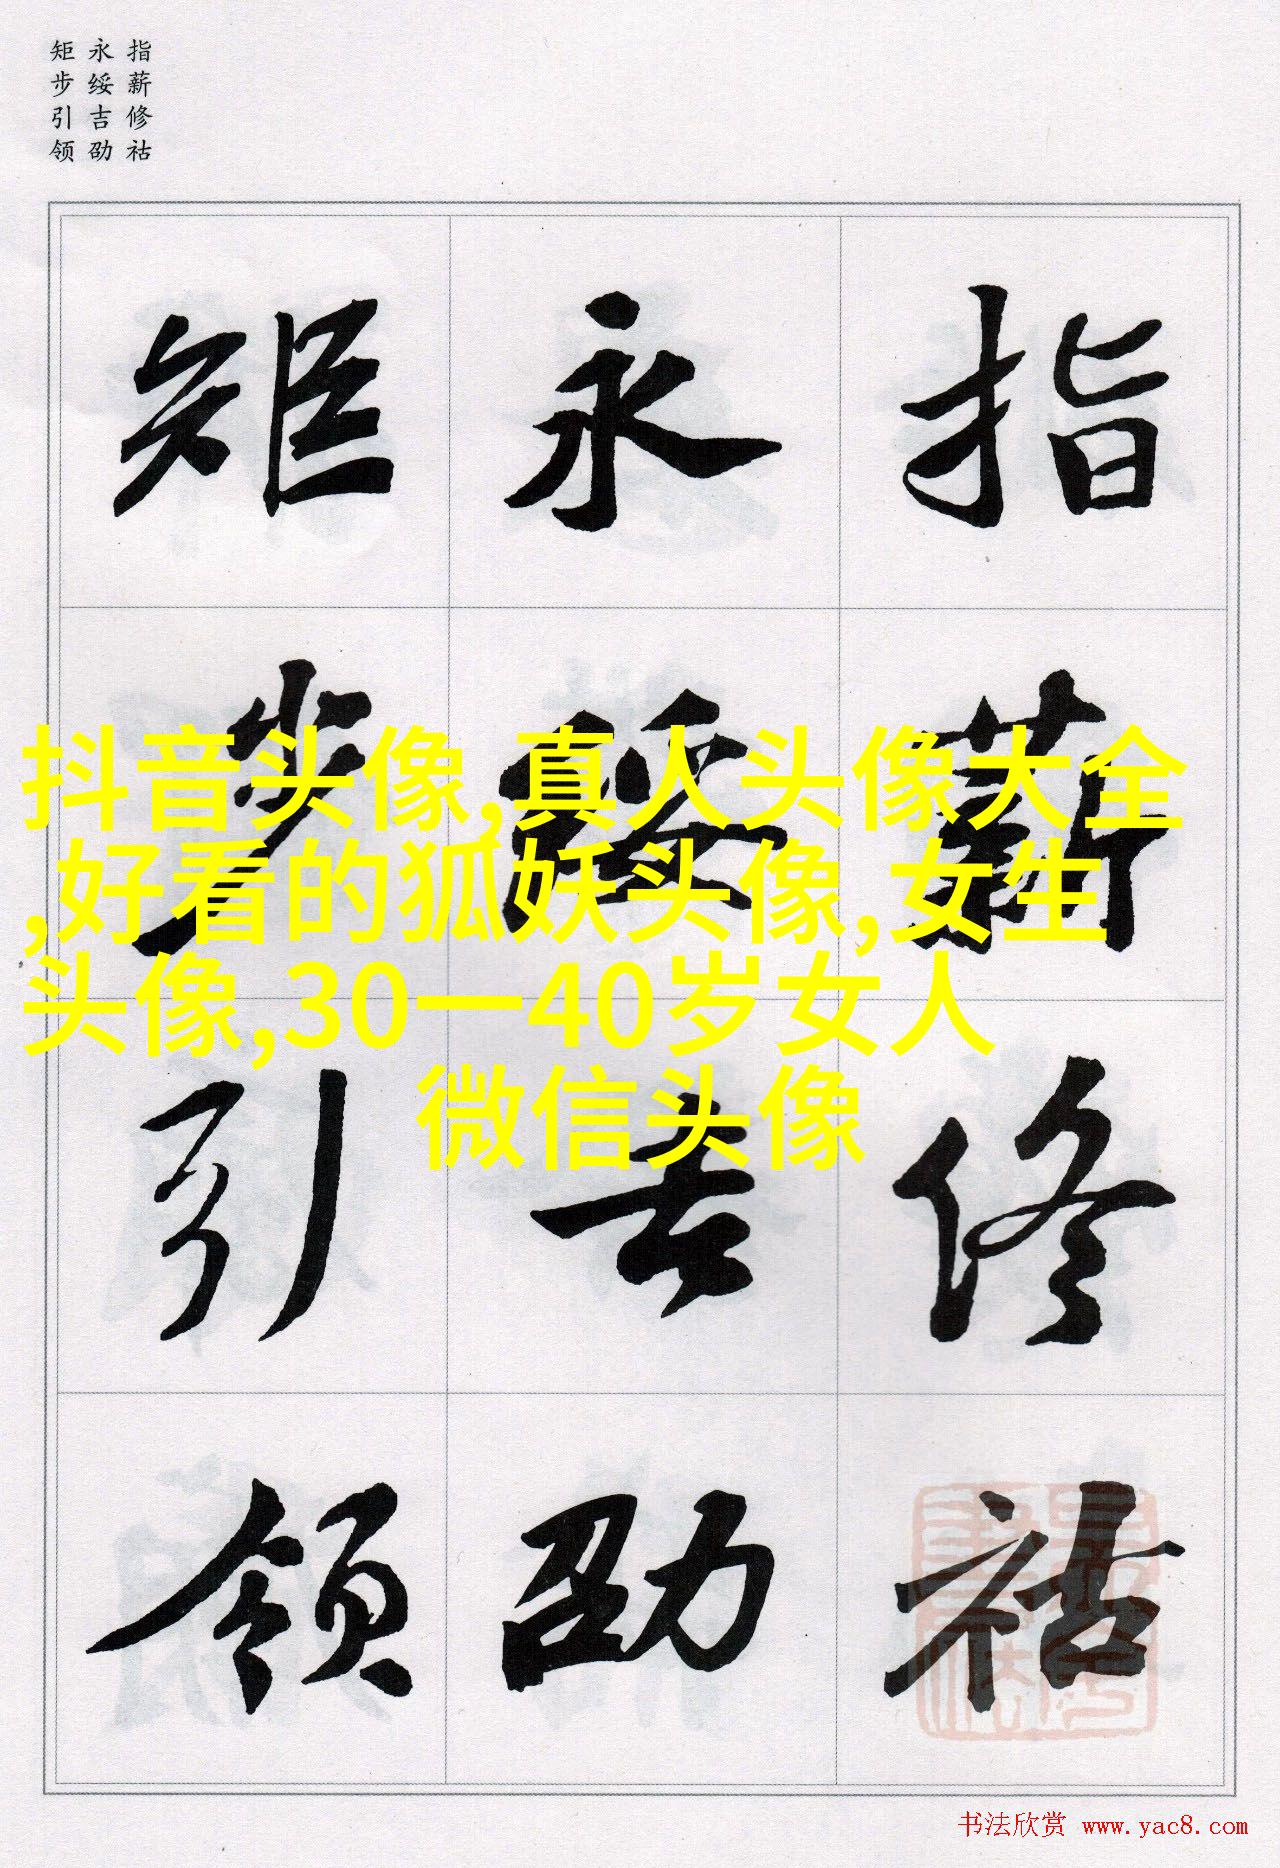 指薪修祜
永绥吉劭
矩步引领
指薪修祜
永绥吉劭
矩步引领
抖音头像,真人头像大全
,好看的狐妖头像,女生
头像,30一40岁女人
微信头像
书法欣赏 www.yac8.com